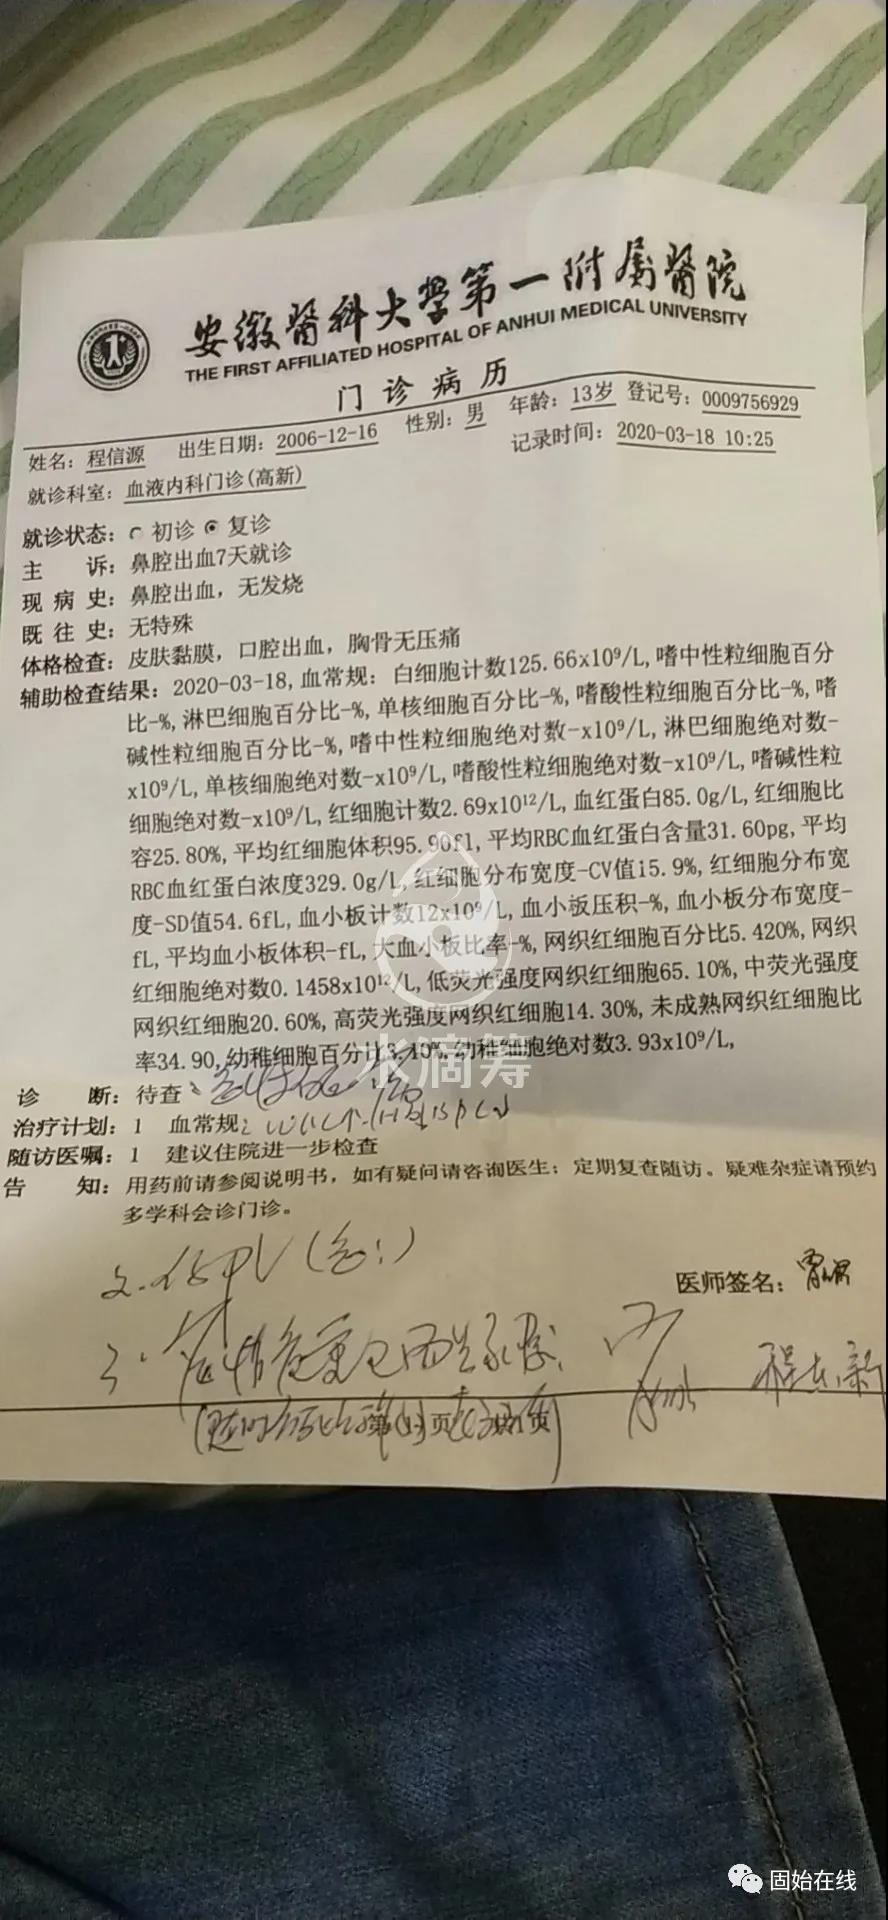 安徽醫科大學第一附属醫院
THE FIRST AFFILIATED HOSPITAL OF ANHUI MEDICAL UNIVERSITY
门诊病历
姓名：程信源 出生日期：2006-12-16 性别：男 年龄：13岁 登记号：0009756929
就诊科室：血液内科门诊(高新) 记录时间：2020-03-18 10:25
就诊状态：初诊 复诊
主诉：鼻腔出血7天就诊
现病史：鼻腔出血，无发烧
既往史：无特殊
体格检查：皮肤黏膜，口腔出血，胸骨无压痛
辅助检查结果：2020-03-18,血常规：白细胞计数125.66x10⁹/L,嗜中性粒细胞百分
比-%,淋巴细胞百分比-%,单核细胞百分比-%,嗜酸性粒细胞百分比-%,嗜
碱性粒细胞百分比-%,嗜中性粒细胞绝对数-x10⁹/L,淋巴细胞绝对数-
x10⁹/L,单核细胞绝对数-x10⁹/L,嗜酸性粒细胞绝对数-x10⁹/L,嗜碱性粒
细胞绝对数-x10⁹/L,红细胞计数2.69x10¹²/L,血红蛋白85.0g/L,红细胞比
容25.80%,平均红细胞体积95.90fl,平均RBC血红蛋白含量31.60pg,平均
RBC血红蛋白浓度329.0g/L,红细胞分布宽度-CV值15.9%,红细胞分布宽
度-SD值54.6fL,血小板计数12x10⁹/L,血小板压积-%,血小板分布宽度-
fL,平均血小板体积-fL,大血小板比率-%,网织红细胞百分比5.420%,网织
红细胞绝对数0.1458x10¹²/L,低荧光强度网织红细胞65.10%,中荧光强度
网织红细胞20.60%,高荧光强度网织红细胞14.30%,未成熟网织红细胞比
率34.90,幼稚细胞百分比3.10%,幼稚细胞绝对数3.93x10⁹/L,
水滴筹
诊断：待查
治疗计划：1 血常规
随访医嘱：1 建议住院进一步检查
告知：用药前请参阅说明书，如有疑问请咨询医生；定期复查随访。疑难杂症请预约
多学科会诊门诊。
医师签名：
固始在线